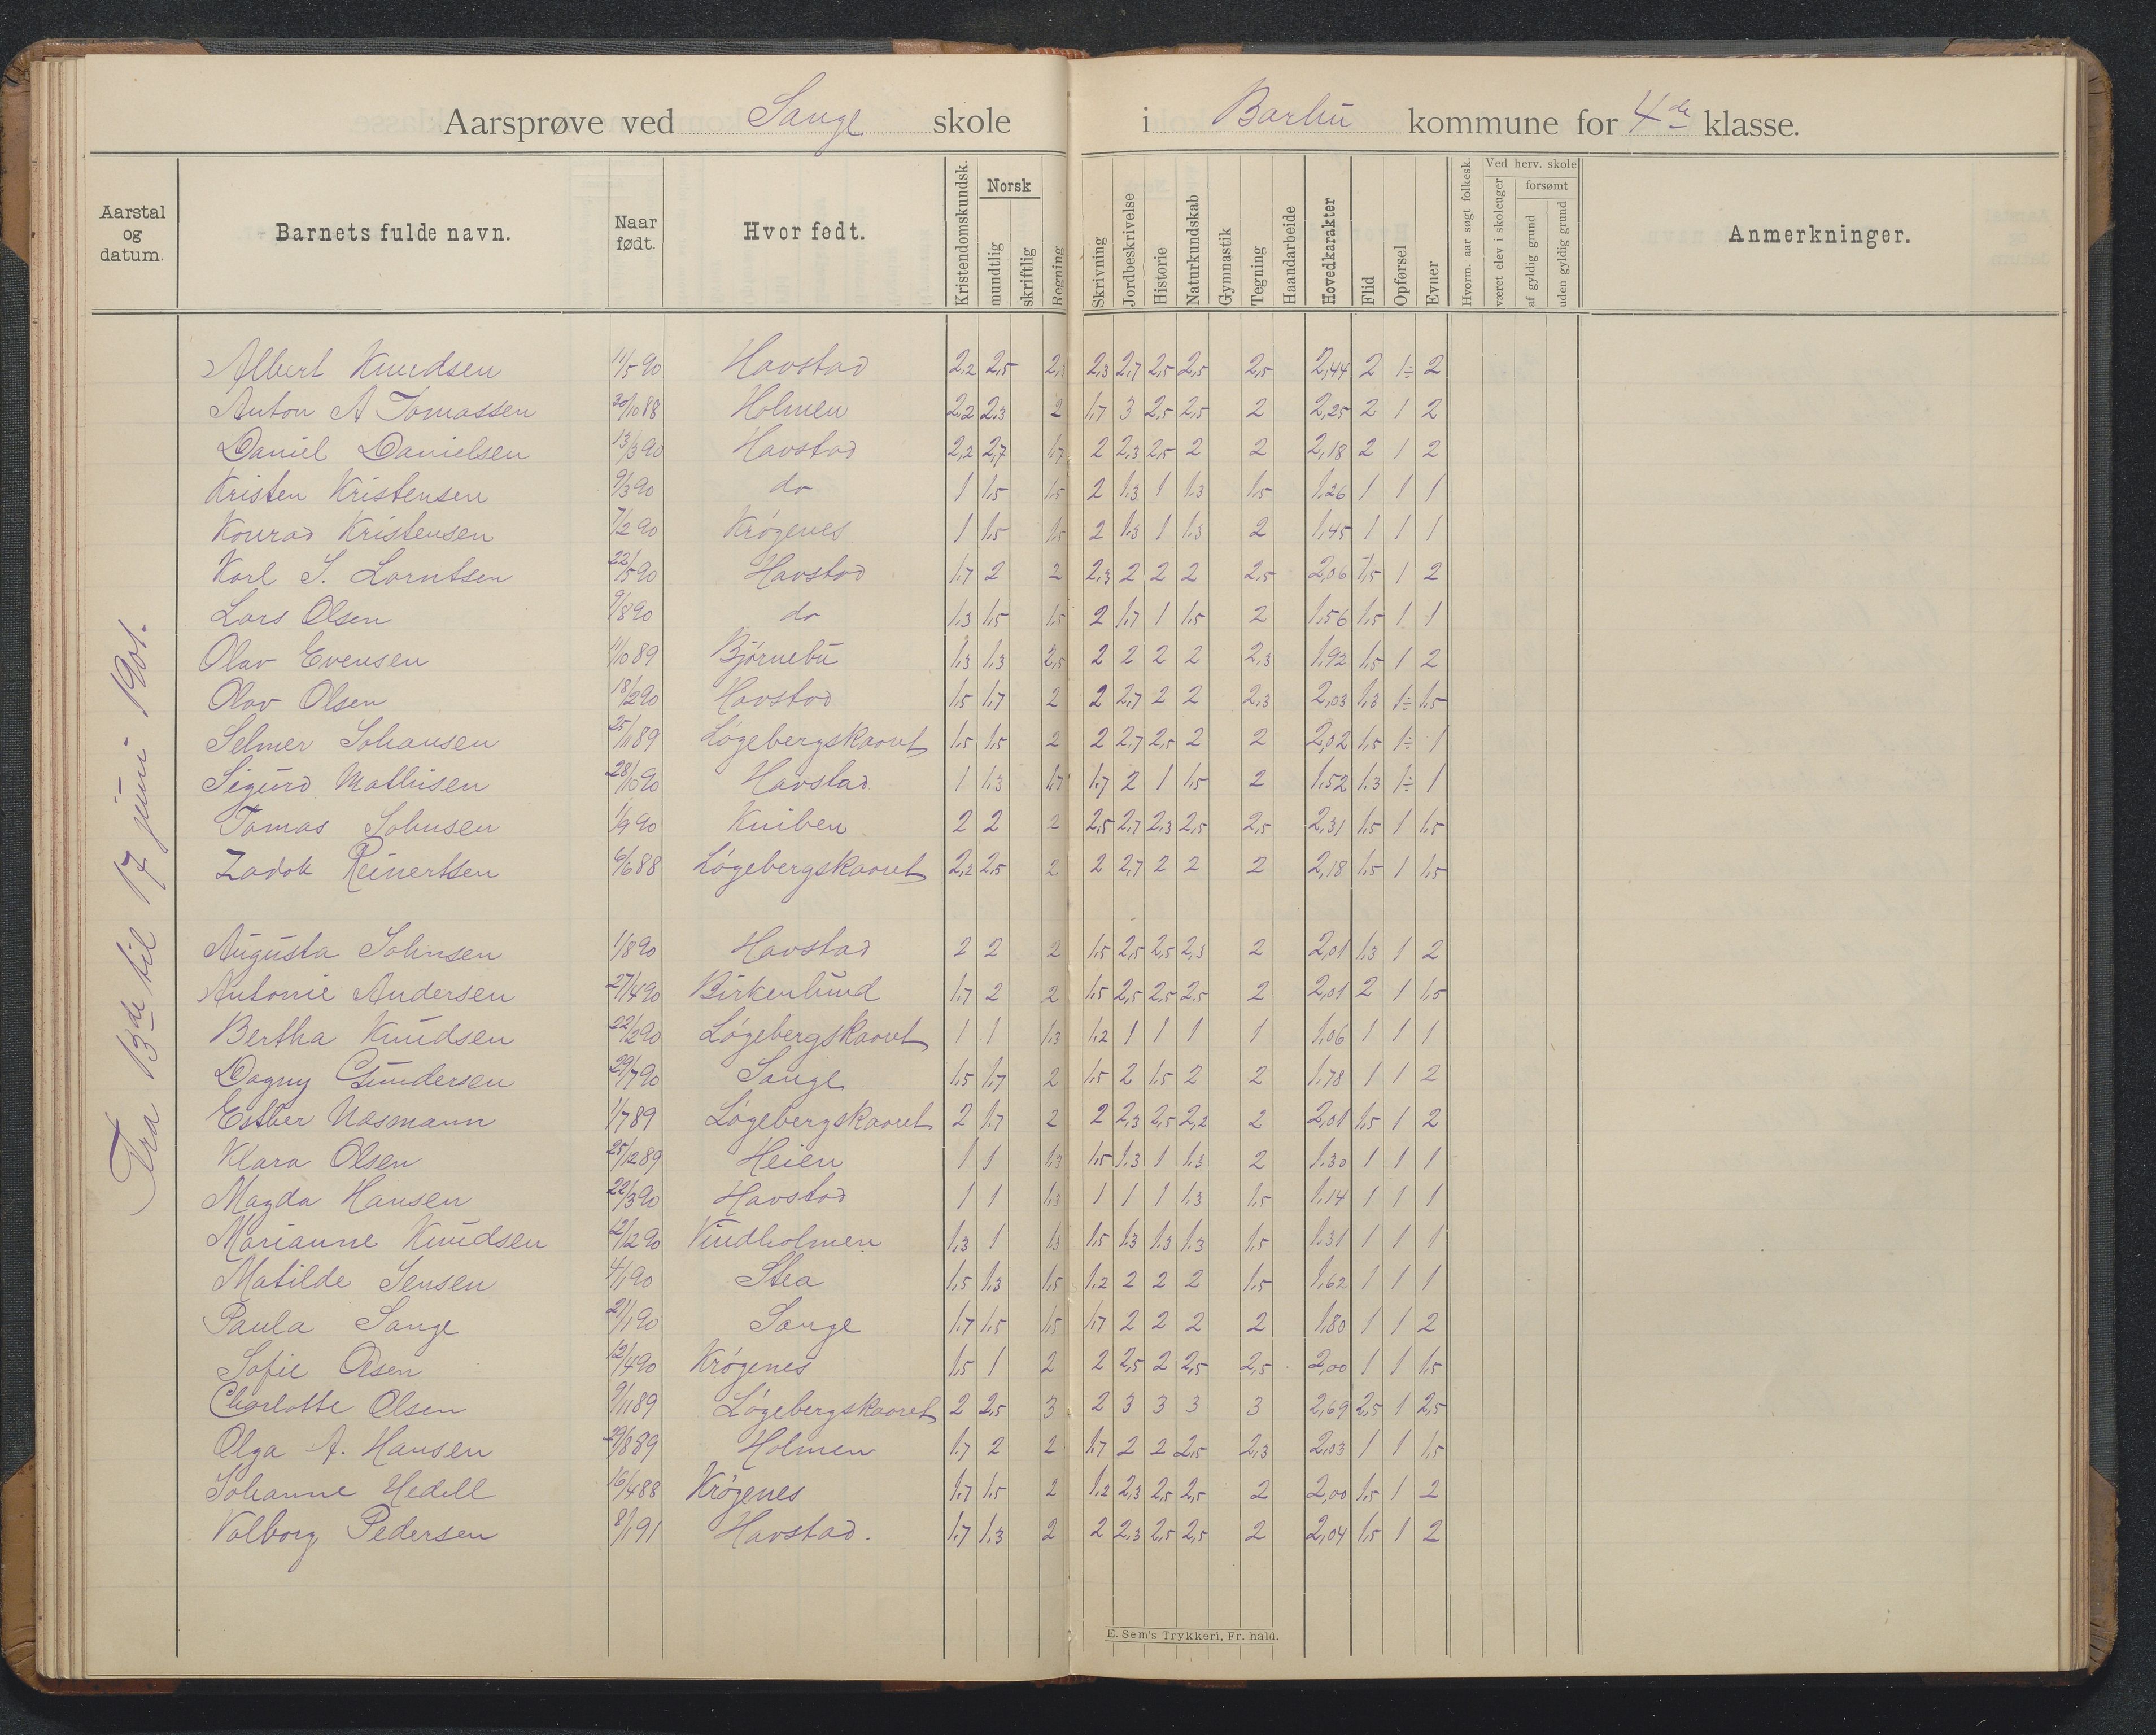 Aarsprøve ved Sange skole i Barbu kommune for 4de klasse.
Aarstal og datum. Barnets fulde navn. Naar født. Hvor født. Kristendomskundsk. Norsk mundtlig skriftlig Regning Skrivning Jordbeskrivelse Historie Naturkundskab Gymnastik Tegning Haandarbeide Hovedkarakter Flid Opførsel Evner Hvorm. aar søgt folkesk. Ved herv. skole været elev i skoleuger forsømt af gyldig grund uden gyldig grund Anmerkninger.
Fra 13de til 17 juni 1901.
Albert Knudsen 11/5 90 Havstad 2,2 2,5 2,3 2,3 2,7 2,5 2,5 2,5 2,44 2 1÷ 2
Anton A Tomassen 30/10 88 Holmen 2,2 2,3 2 1,7 3 2,5 2,5 2 2,25 2 1 2
Daniel Danielsen 13/3 90 Havstad 2,2 2,7 1,7 2 2,3 2,5 2 2 2,18 2 1 2
Kristen Kristensen 9/3 90 do 1 1,5 1,5 2 1,3 1 1,3 1,5 1,26 1 1 1
Konrad Kristensen 7/2 90 Krøgenes 1 1,5 1,5 2 1,3 1 1,3 2 1,45 1 1 1
Karl S. Lorntsen 22/5 90 Havstad 1,7 2 2 2,3 2 2 2 2,5 2,06 1,5 1 2
Lars Olsen 9/8 90 do 1,3 1,5 1,5 2 1,7 1 1,5 2 1,56 1,5 1 1
Olav Evensen 11/10 89 Bjørnebu 1,3 1,3 2,5 2 2 2 2 2,3 1,92 1,5 1 2
Olav Olsen 18/2 90 Havstad 1,5 1,7 2 2 2,7 2 2 2,3 2,03 1,3 1÷ 1,5
Selmer Johansen 25/11 89 Løgebergskaaret 1,5 1,5 2 2 2,7 2,5 2 2 2,02 1,5 1÷ 1
Sigurd Mathisen 28/10 90 Havstad 1 1,3 1,7 1,7 2 1 1,5 2 1,52 1,3 1÷ 1
Tomas Johnsen 1/9 90 Kniben 2 2 2 2,5 2,7 2,3 2,5 2,5 2,31 1,5 1 1,5
Zadok Reinertsen 6/6 88 Løgebergskaaret 2,2 2,5 2 2 2,7 2 2 2 2,18 1,5 1 1,5
Augusta Johnsen 1/8 90 Havstad 2 2 2 1,5 2,5 2,5 2,3 2 2,01 1,3 1 2
Antonie Andersen 27/4 90 Birkenlund 1,7 2 2 1,5 2,5 2,5 2,5 2 2,01 2 1 1,5
Bertha Knudsen 22/2 90 Løgebergskaaret 1 1 1,3 1,2 1 1 1 1 1,06 1 1 1
Dagny Gundersen 29/7 90 Sange 1,5 1,7 2 1,5 2 1,5 2 2 1,78 1 1 2
Esther Nasmann 1/7 89 Løgebergskaaret 2 1,7 2 2 2,3 2,5 2,2 2 2,01 1,5 1 2
Klara Olsen 25/12 89 Heien 1 1 1,3 1,5 1,3 1 1,3 2 1,30 1 1 1
Magda Hansen 22/3 90 Havstad 1 1 1,3 1 1 1 1,3 1,5 1,14 1 1 1
Marianne Knudsen 12/2 90 Vindholmen 1,3 1 1,3 1,5 1,3 1,3 1,3 1,5 1,31 1 1 1
Matilde Jensen 4/1 90 Stea 1,5 1,3 1,5 1,2 2 2 2 1,5 1,62 1 1 1
Paula Sange 21/1 90 Sange 1,7 1,5 1,5 1,7 2 2 2 2 1,80 1 1 2
Sofie Olsen 12/4 90 Krøgenes 1,5 1 2 2 2,5 2 2,5 2,5 2,00 1 1 1,5
Charlotte Olsen 9/11 89 Løgebergskaaret 2 2,5 3 2 3 3 3 3 2,69 2,5 1 2,5
Olga A. Hansen 29/8 89 Holmen 1,7 2 2 1,7 2 2 2,5 2,3 2,03 1 1 1,5
Johanne Hedell 16/4 88 Krøgenes 1,7 1,5 2 1,2 2,3 2,5 2,5 2 2,00 1,5 1 2
Valborg Pedersen 8/1 91 Havstad. 1,7 1,3 2 2 2,3 2,5 2,5 2 2,04 1,5 1 2
E. Sem's Trykkeri, Fr. hald.